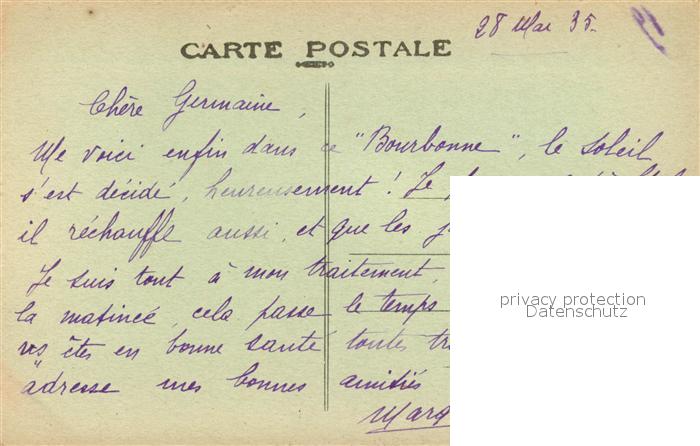 28 Mai 35.
CARTE POSTALE
Chère Germaine,
Me voici enfin dans ce "Bourbonne", le soleil
s'est décidé, heureusement ! Je
il réchauffe aussi, et que les
Je suis tout à mon traitement,
la matinée, cela passe le temps
vs êtes en bonne santé toutes
adresse mes bonnes amitiés
privacy protection
Datenschutz